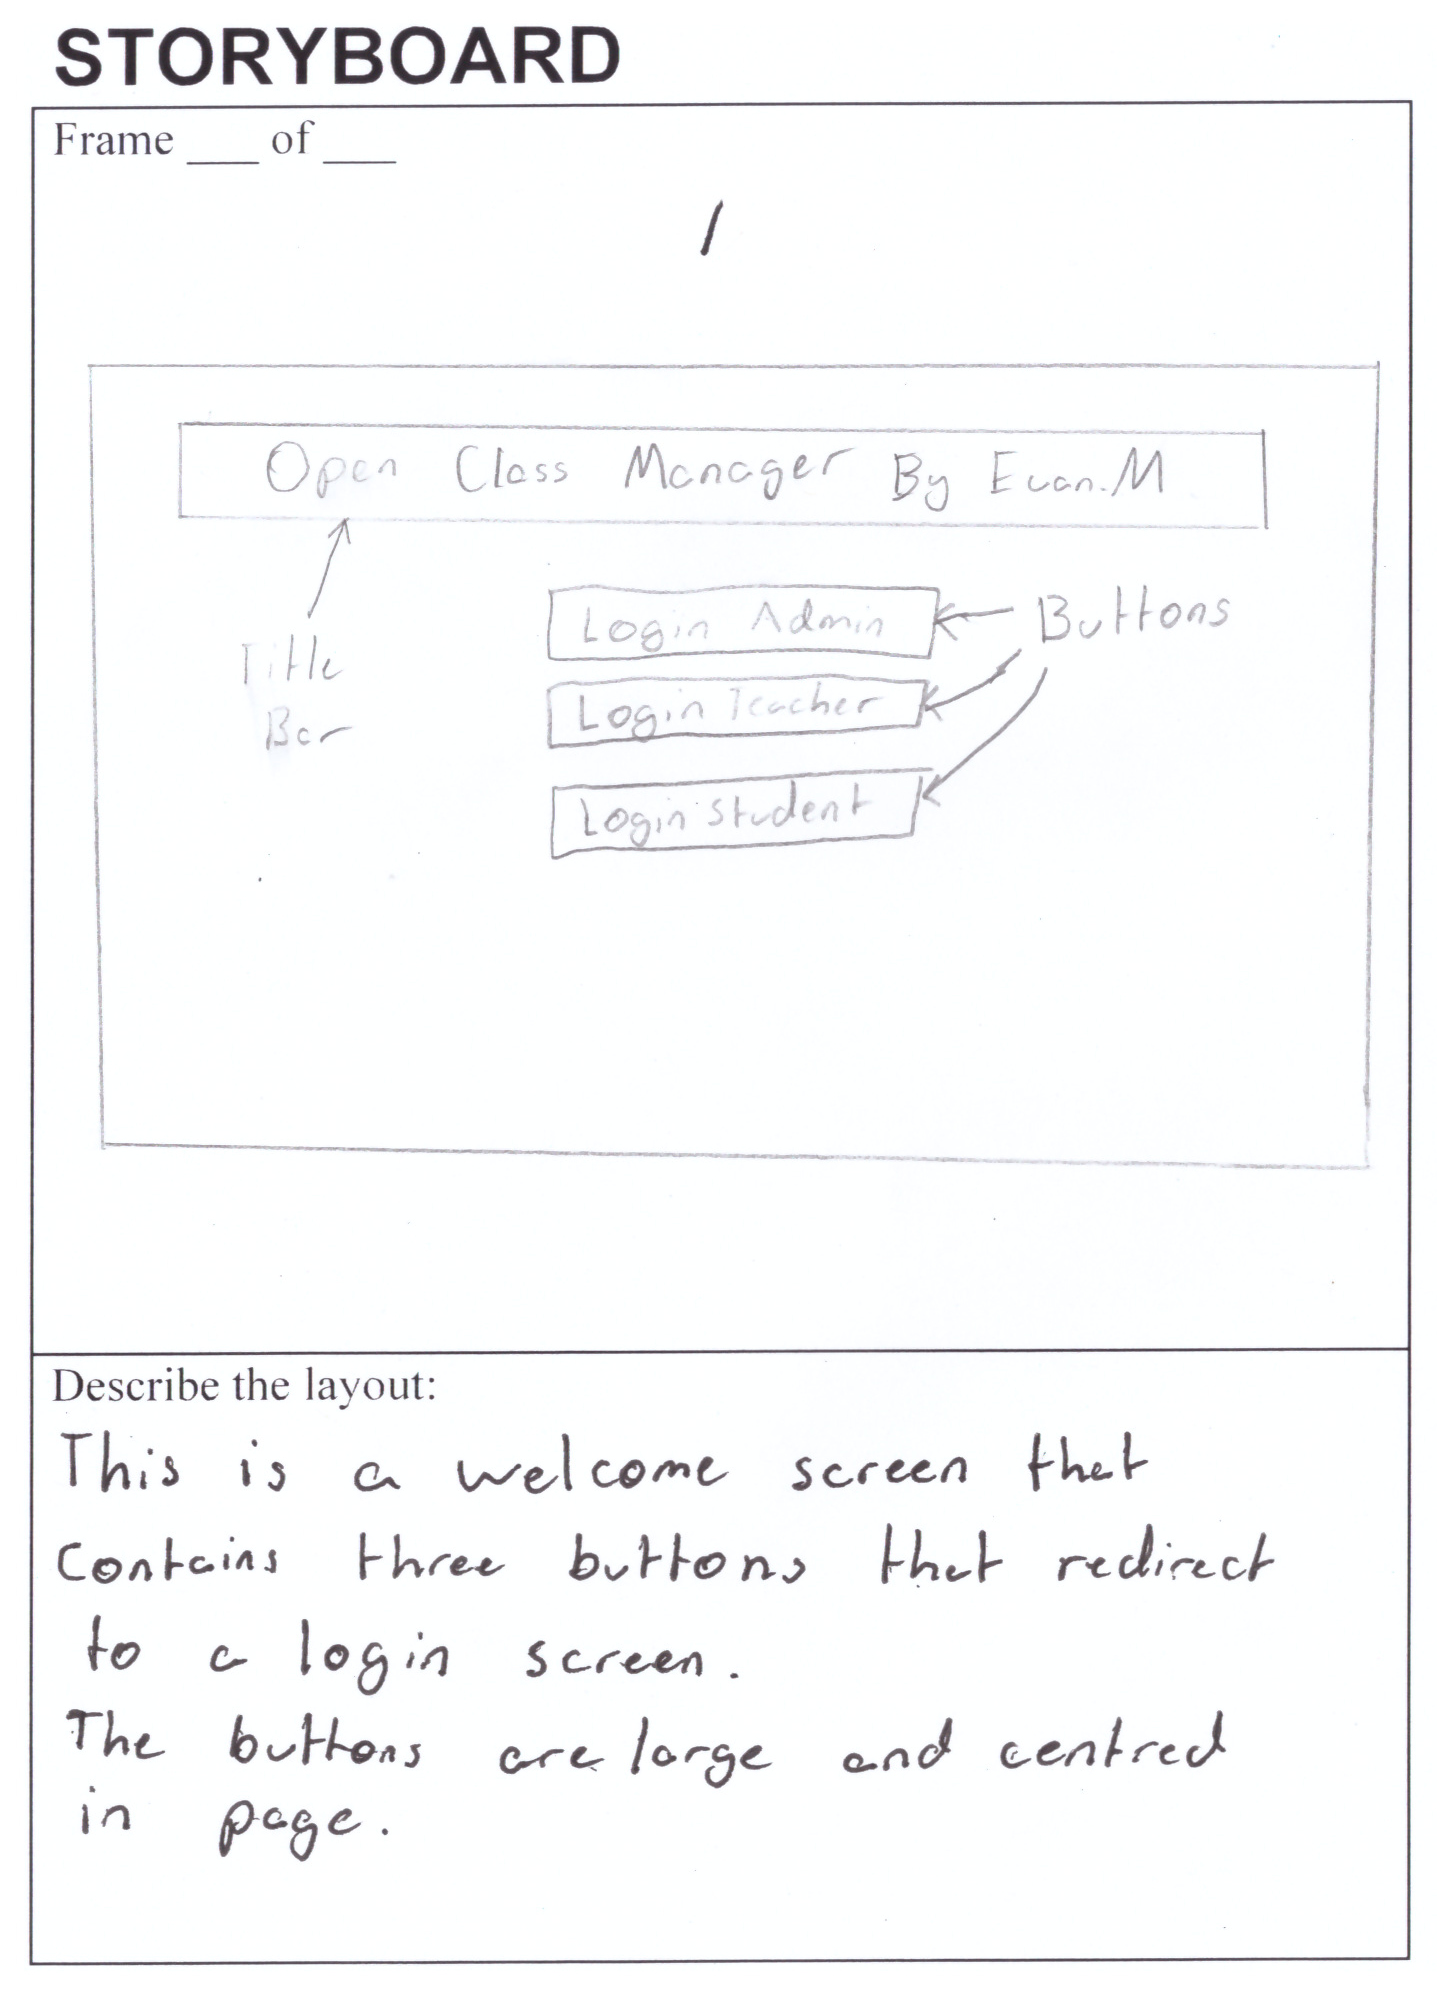 STORYBOARD
Frame ___ of ___
1
Open Class Manager By Evan.M
Login Admin
Buttons
Title
Bar
Login Teacher
Login Student
Describe the layout:
This is a welcome screen that
contains three buttons that redirect
to a login screen.
The buttons are large and centred
in page.